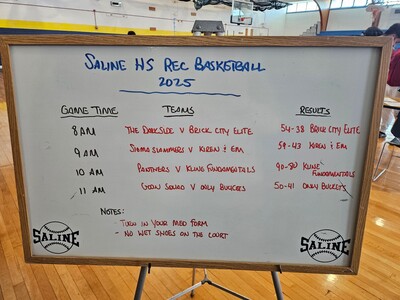 SALINE HS REC BASKETBALL
2025
GAME TIME TEAMS RESULTS
8 AM THE DARKSIDE V BRICK CITY ELITE 54-38 BRICK CITY ELITE
9 AM SIGMA SLAMMERS V KIREN & EM 59-43 KIREN & EM
10 AM PANTHERS V KLING FUNDAMENTALS 90-80 KLING
FUNDAMENTALS
11 AM GOON SQUAD V ONLY BUCKETS 50-41 ONLY BUCKETS
NOTES:
- TURN IN YOUR MED FORM
- NO WET SHOES ON THE COURT
SALINE
SALINE